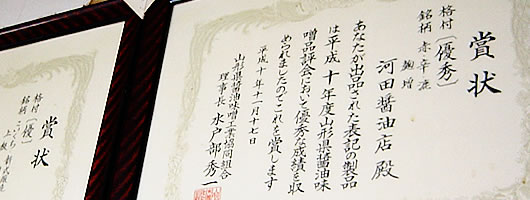 賞状
格付〔優秀〕
銘柄 赤辛
河田醤油店殿
あなたが出品された表記の製品
は平成十年度山形県醤油味
噌品評会において優秀な成績を収
められましたのでこれを賞します
平成十年十一月十七日
山形県醤油味噌工業協同組合
理事長 水戸部秀一
賞状
格付〔優〕
銘柄 こいくち